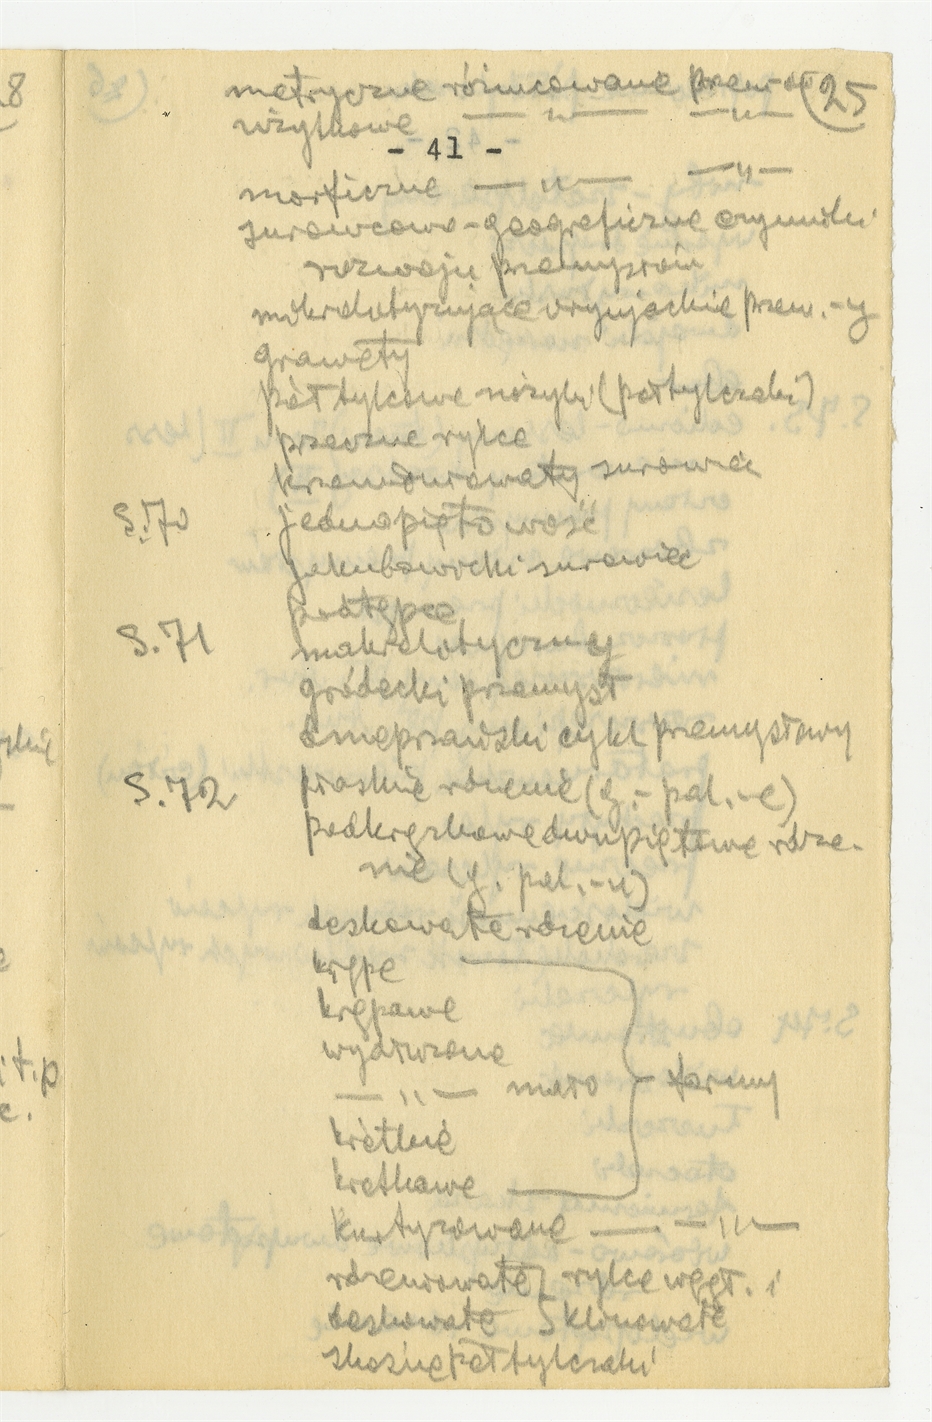 metryczne różnicowanie przem-ów (25
użytkowe — „ — — „ —
- 41 -
morficzne — „ — — „ —
surowcowo-geograficzne czynniki
rozwoju przemysłów
mikrolityzujące oryniackie przem.-y
grawety
półtylcowe nożyki (półtylczaki)
przeczne rylce
krzemionkowaty surowiec
S.70 jednopiętowość
jakubowicki surowiec
postępce
S.71 makrolityczny
gródecki przemysł
dnieprzański cykl przemysłowy
S.72 płaskie rdzenie (g.-pal.-e)
podkrążkowe dwupiętowe rdze-
nie (g. pal.-u)
deskowate rdzenie
krępe
krępawe
wydłużone
— „ — mało formy
krótkie
krótkawe
Kurtyzowane — — „ —
rdzeniowate rylce węgł. i
deskowate klinowate
skośne półtylczaki
S.